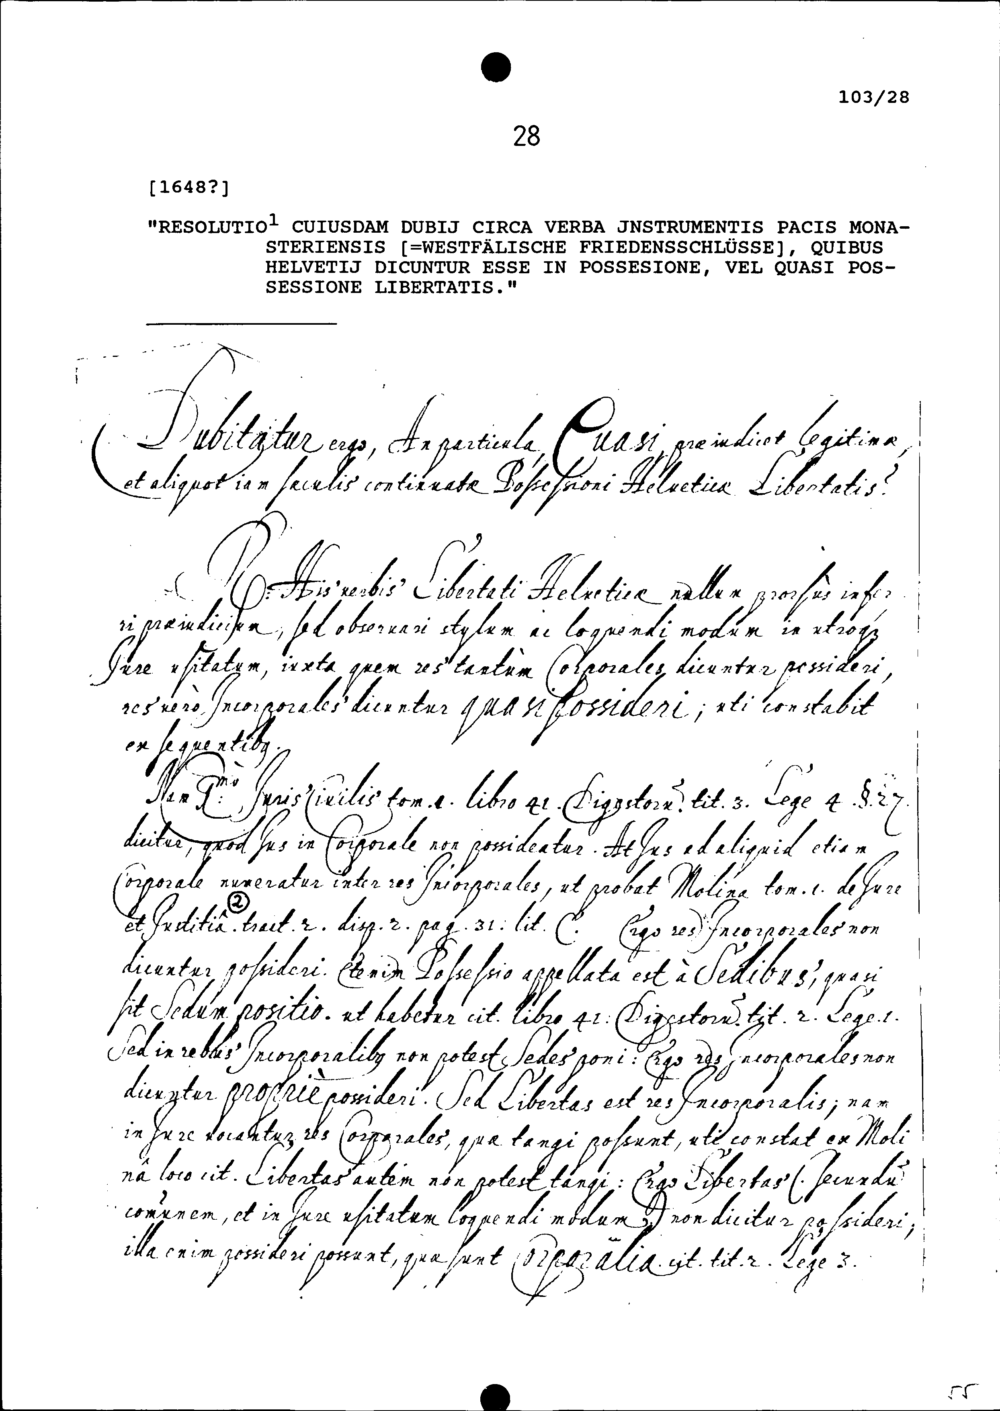 103/28
28
[1648?]
"RESOLUTIO1 CUIUSDAM DUBIJ CIRCA VERBA JNSTRUMENTIS PACIS MONA-
STERIENSIS [=WESTFÄLISCHE FRIEDENSSCHLÜSSE], QUIBUS
HELVETIJ DICUNTUR ESSE IN POSSESIONE, VEL QUASI POS-
SESSIONE LIBERTATIS."
Dubitatur ergo, An particula, Quasi, præiudicet legitimæ,
et aliquot iam sæculis continuatæ Possessioni Helveticæ Libertatis?
R: His verbis Libertati Helveticæ nullum prorsùs infer
ri præiudicium, sed observari stylum ac loquendi modum in utroqz
Jure usitatum, iuxta quem res tantùm Corporales dicuntur possideri,
res verò Incorporales dicuntur quasi possideri; uti constabit
ex sequentibz.
Nam Imò: Juris Civilis tom. 1. libro 41. Digestorũ. tit. 3. Lege 4. §. 27.
dicitur, quod Jus in Corporale non possideatur. At Jus ad aliquid etiam
Corporale numeratur inter res Incorporales, ut probat Molina tom. 1. de Jure
et Justitiâ. 2 tract. 2. disp. 2. pag. 31. lit. C. Ergo res Incorporales non
dicuntur possideri. Etenim Possessio appellata est à Sedibus, quasi
sit Sedum positio. ut habetur cit. libro 41. Digestorũ. tit. 2. Lege. 1.
Sed in rebus Incorporalibz non potest Sedes poni: Ergo res Incorporales non
dicuntur propriè possideri. Sed Libertas est res Incorporalis; nam
in Jure vocantur res Corporales, quæ tangi possunt, uti constat ex Moli
nâ loco cit. Libertas autem non potest tangi: Ergo Libertas (: secundũ
comũnem, et in Jure usitatum loquendi modum :) non dicitur possideri;
illa enim possideri possunt, quæ sunt Corporalia. cit. tit. 2. Lege 3.
55